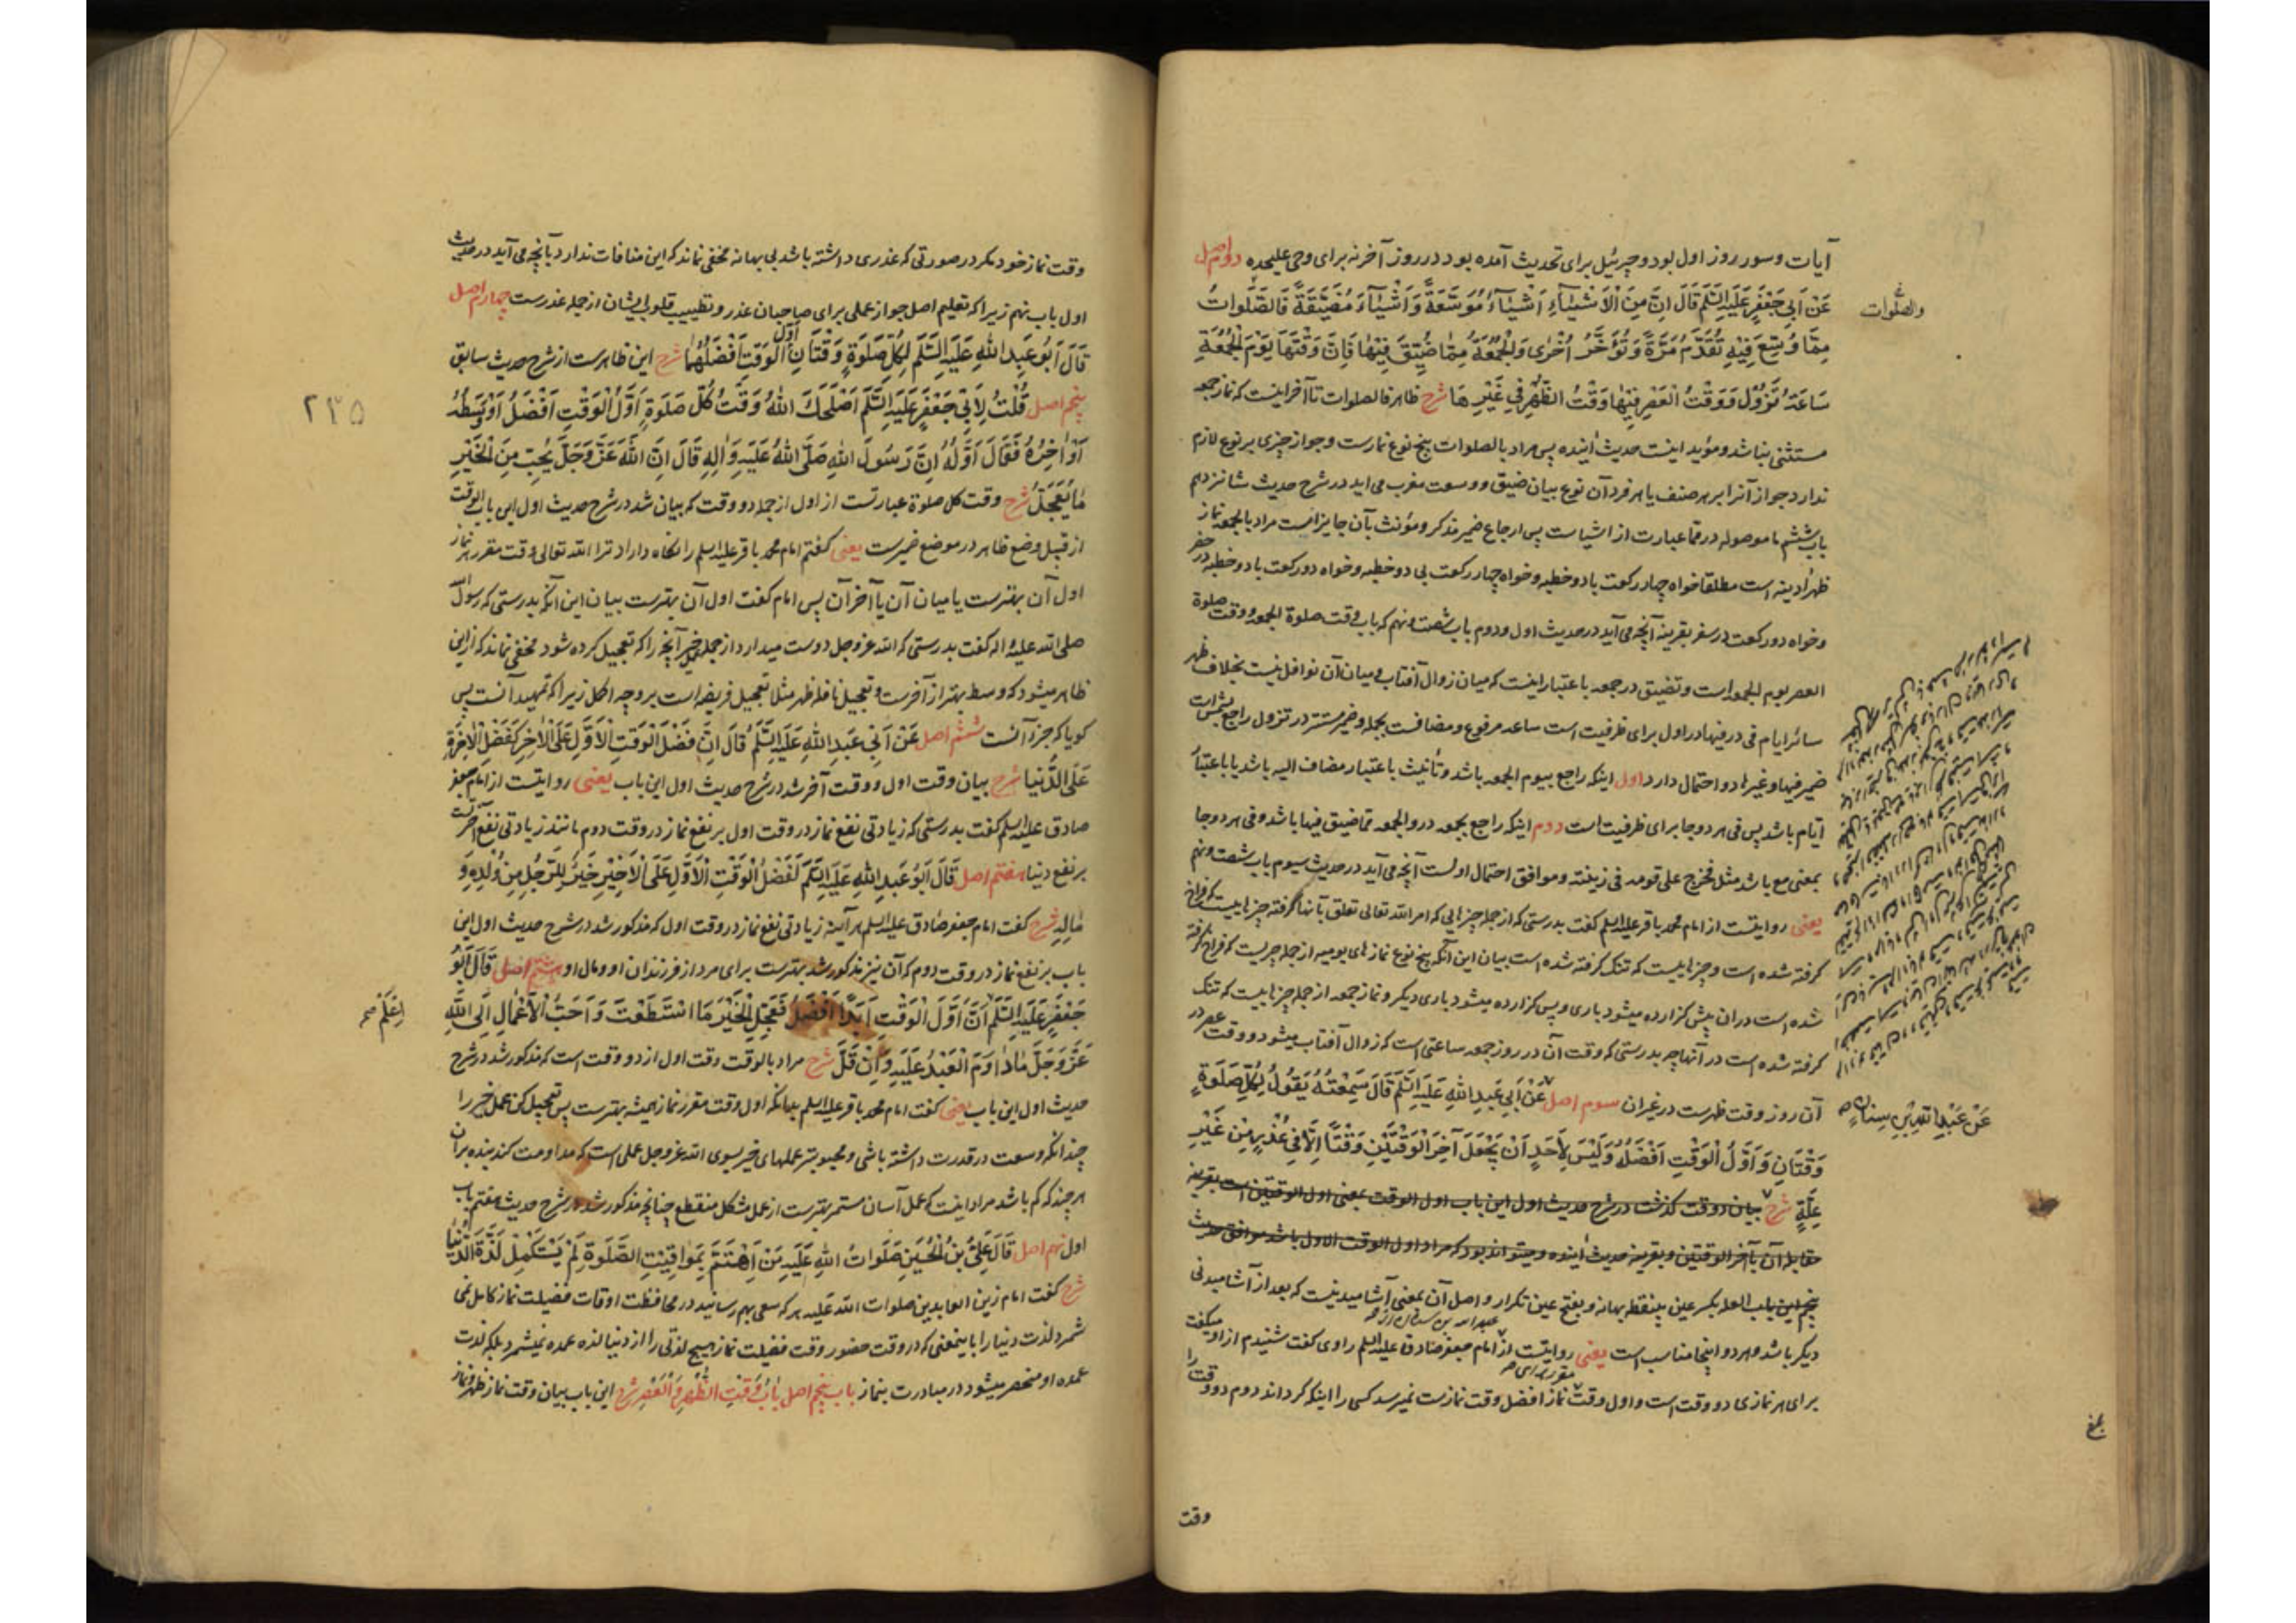 آیات و سور روز اول بود و جبرئیل برای تحدیث آمده بود در روز آخر نه برای وحی علیحده دوم اصل
عَنْ اَبِی جَعْفَرٍ عَلَیْهِ السَّلَمُ قَالَ اِنَّ مِنَ الْاَشْیٰٓاءِ اَشْیٰٓاءً مُوَسَّعَةً وَ اَشْیٰٓاءَ مُضَیَّقَةً فَالصَّلَوَاتُ
والصلوات
مِمَّا وُسِّعَ فِیْهِ تُقَدَّمُ مَرَّةً وَ تُؤَخَّرُ اُخْرٰی وَ الْجُمُعَةُ مِمَّا ضُیِّقَ فِیْهٰا فَاِنَّ وَقْتَهَا یَوْمَ الْجُمُعَةِ
سَاعَةُ تَزُوْلُ وَ وَقْتُ الْعَصْرِ فِیْهٰا وَقْتُ الظُّهْرِ فِی غَیْرِهَا شرح ظاهر فالصلوات تا آخر اینست که نماز جمعه
مستثنی بنا شد و مؤید اینست حدیث آینده پس مراد بالصلوات پنج نوع نمازست و جواز چیزی بر نوع لازم
ندارد جواز آنرا بر هر صنف یا هر فرد آن نوع بیان ضیق و وسعت مغرب می آید در شرح حدیث شانزدهم
باب ششم ما موصوله در مما عبارت از اشیا است پس ارجاع ضمیر مذکر و مؤنث بآن جایز است مراد بالجمعه نماز
ظهر آدینه است مطلقا خواه چهار رکعت با دو خطبه و خواه چهار رکعت بی دو خطبه و خواه دو رکعت با دو خطبه در حضر
و خواه دو رکعت در سفر بقرینه آنچه می آید در حدیث اول و دوم باب شصت و نهم که باب وقت صلوة الجمعه و وقت صلوة
العصر یوم الجمعه است و تضییق در جمعه باعتبار اینست که میان زوال آفتاب و میان آن نوافل نیست بخلاف ظهر
سائر ایام فی در فیها در اول برای ظرفیت است ساعه مرفوع و مضافست بجمله و ضمیر مستتر در تزول راجع بشمس است
ضمیر فیها و غیرها دو احتمال دارد اول اینکه راجع بیوم الجمعه باشد و تأنیث باعتبار مضاف الیه باشد یا باعتبار
ایام باشد پس فی هر دو جا برای ظرفیت است دوم اینکه راجع بجمعه در و الجمعه مما ضیق فیها باشد و فی هر دو جا
بمعنی مع باشد مثل فخرج علی قومه فی زینته و موافق احتمال اولست آنچه می آید در حدیث سیوم باب شصت و نهم
یعنی روایتست از امام محمد باقر علیه السلم گفت بدرستی که از جمله چیزهایی که امر الله تعالی تعلق بآنها گرفته چیزهاییست که فراخ
گرفته شده است و چیزهاییست که تنک گرفته شده است بیان این آنکه پنج نوع نمازهای یومیه از جمله چیزیست که فراخ گرفته
شده است در آن پیش گزارده میشود باری و پس گزارده میشود باری دیگر و نماز جمعه از جمله چیزهاییست که تنک
گرفته شده است در آنها چه بدرستی که وقت آن در روز جمعه ساعتی است که زوال آفتاب میشود و وقت عصر در
آن روز وقت ظهرست در غیر آن سوم اصل عَنْ اَبِی عَبْدِ اللّٰهِ عَلَیْهِ السَّلَمُ قَالَ سَمِعْتُهُ یَقُوْلُ لِکُلِّ صَلَوةٍ
عَنْ عَبْدِ اللّٰهِ بْنِ سِنَانٍ صح
وَقْتَانِ وَ اَوَّلُ الْوَقْتِ اَفْضَلُهُ وَ لَیْسَ لِاَحَدٍ اَنْ یَجْعَلَ آخِرَ الْوَقْتَیْنِ وَقْتًا اِلَّا فِی عُذْرٍ مِنْ غَیْرِ
عِلَّةٍ شرح بیان دو وقت گذشت در شرح حدیث اول این باب اول الوقت بمعنی اول الوقتین است بقرینه
مقابله آن بآخر الوقتین و بقرینه حدیث آینده و میتواند بود که مراد اول الوقت الاول باشد موافق حدیث
پنجم این باب العله بکسر عین بینقطه بهانه و بفتح عین تکرار و اصل آن بمعنی آشامیدنیست که بعد از آشامیدنی
دیگر باشد و هر دو اینجا مناسب است یعنی روایتست از امام جعفر صادق علیه السلم راوی گفت شنیدم از او میگفت
برای هر نمازی دو وقت است و اول وقت نماز افضل وقت نمازست نمیرسد کسی را اینکه گرداند دوم دو وقت را
وقت
وقت نماز خود مگر در صورتی که عذری داشته باشد بی بهانه مخفی نماند که این منافات ندارد بآنچه می آید در حدیث
اول باب نهم زیرا که تعلیم اصل جواز عملی برای صاحبان عذر و تطییب قلوب ایشان از جمله عذرست چهارم اصل
قَالَ اَبُو عَبْدِ اللّٰهِ عَلَیْهِ السَّلَمُ لِکُلِّ صَلَوةٍ وَقْتَانِ اَوَّلُ الْوَقْتِ اَفْضَلُهُمَا شرح این ظاهرست از شرح حدیث سابق
پنجم اصل قُلْتُ لِاَبِی جَعْفَرٍ عَلَیْهِ السَّلَمُ اَصْلَحَكَ اللّٰهُ وَقْتُ کُلِّ صَلَوةٍ اَوَّلُ الْوَقْتِ اَفْضَلُ اَوْ وَسَطُهُ
۲۳۵
اَوْ اٰخِرُهُ فَقَالَ اَوَّلُهُ اِنَّ رَسُولَ اللّٰهِ صَلَّی اللّٰهُ عَلَیْهِ وَ اٰلِهِ قَالَ اِنَّ اللّٰهَ عَزَّ وَ جَلَّ یُحِبُّ مِنَ الْخَیْرِ
مٰا یُعَجَّلُ شرح وقت کل صلوة عبارتست از اول از جمله دو وقت که بیان شد در شرح حدیث اول این باب الوقت
از قبیل وضع ظاهر در موضع ضمیرست یعنی گفتم امام محمد باقر علیه السلم را نگاه داراد ترا الله تعالی وقت مقرر هر نماز
اول آن بهترست یا میان آن یا آخر آن پس امام گفت اول آن بهترست بیان این آنکه بدرستی که رسول الله
صلی الله علیه و اله گفت بدرستی که الله عز و جل دوست میدارد از جمله عمل خیر آنچه را که تعجیل کرده شود مخفی نماند که ازین
ظاهر میشود که وسط بهتر از آخرست و تعجیل نافله ظهر مثلا تعجیل فریضه است بر وجه اکمل زیرا که تمهید آنست پس
گویا که جزء آنست ششم اصل عَنْ اَبِی عَبْدِ اللّٰهِ عَلَیْهِ السَّلَمُ قَالَ اِنَّ فَضْلَ الْوَقْتِ الْاَوَّلِ عَلَی الْاٰخِرِ کَفَضْلِ الْاٰخِرَةِ
عَلَی الدُّنْیَا شرح بیان وقت اول و وقت آخر شد در شرح حدیث اول این باب یعنی روایتست از امام جعفر
صادق علیه السلم گفت بدرستی که زیادتی نفع نماز در وقت اول بر نفع نماز در وقت دوم مانند زیادتی نفع آخرتست
بر نفع دنیا هفتم اصل قَالَ اَبُو عَبْدِ اللّٰهِ عَلَیْهِ السَّلَمُ لَفَضْلُ الْوَقْتِ الْاَوَّلِ عَلَی الْاَخِیْرِ خَیْرٌ لِلرَّجُلِ مِنْ وُلْدِهِ وَ
مٰالِهِ شرح گفت امام جعفر صادق علیه السلم هر آینه زیادتی نفع نماز در وقت اول که مذکور شد در شرح حدیث اول این
باب بر نفع نماز در وقت دوم که آن نیز مذکور شد بهترست برای مرد از فرزندان او و مال او هشتم اصل قَالَ اَبُو
جَعْفَرٍ عَلَیْهِ السَّلَمُ اَنَّ اَوَّلَ الْوَقْتِ اَبَدًا اَفْضَلُ فَعَجِّلِ الْخَیْرَ مَا اسْتَطَعْتَ وَ اَحَبُّ الْاَعْمَالِ اِلَی اللّٰهِ
اِعْلَمْ صح
عَزَّ وَ جَلَّ مٰا دٰاوَمَ الْعَبْدُ عَلَیْهِ وَ اِنْ قَلَّ شرح مراد بالوقت وقت اول از دو وقت است که مذکور شد در شرح
حدیث اول این باب یعنی گفت امام محمد باقر علیه السلم بدانکه اول وقت مقرر نماز همیشه بهترست پس تعجیل کن عمل خیر را
چندانکه وسعت در قدرت داشته باشی و محبوبتر عملهای خیر بسوی الله عز و جل عملی است که مداومت کند بنده بر آن
هر چند که کم باشد مراد اینست که عمل آسان مستمر بهترست از عمل مشکل منقطع چنانچه مذکور شد در شرح حدیث هفتم باب
اول نهم اصل قَالَ عَلِیُّ بْنُ الْحُسَیْنِ صَلَوَاتُ اللّٰهِ عَلَیْهِ مَنِ اهْتَمَّ بِمَوَاقِیْتِ الصَّلَوةِ لَمْ یَسْتَکْمِلْ لَذَّةَ الدُّنْیَا
شرح گفت امام زین العابدین صلوات الله علیه هر که سعی بهم رسانید در محافظت اوقات فضیلت نماز کامل نمی
شمرد لذت دنیا را باینمعنی که در وقت حضور وقت فضیلت نماز هیچ لذتی را از دنیا لذه عمده نمیشمرد بلکه لذت
عمده او منحصر میشود در مبادرت بنماز باب پنجم اصل بَابُ وَقْتِ الظُّهْرِ وَ الْعَصْرِ شرح این باب بیان وقت نماز ظهر و نماز